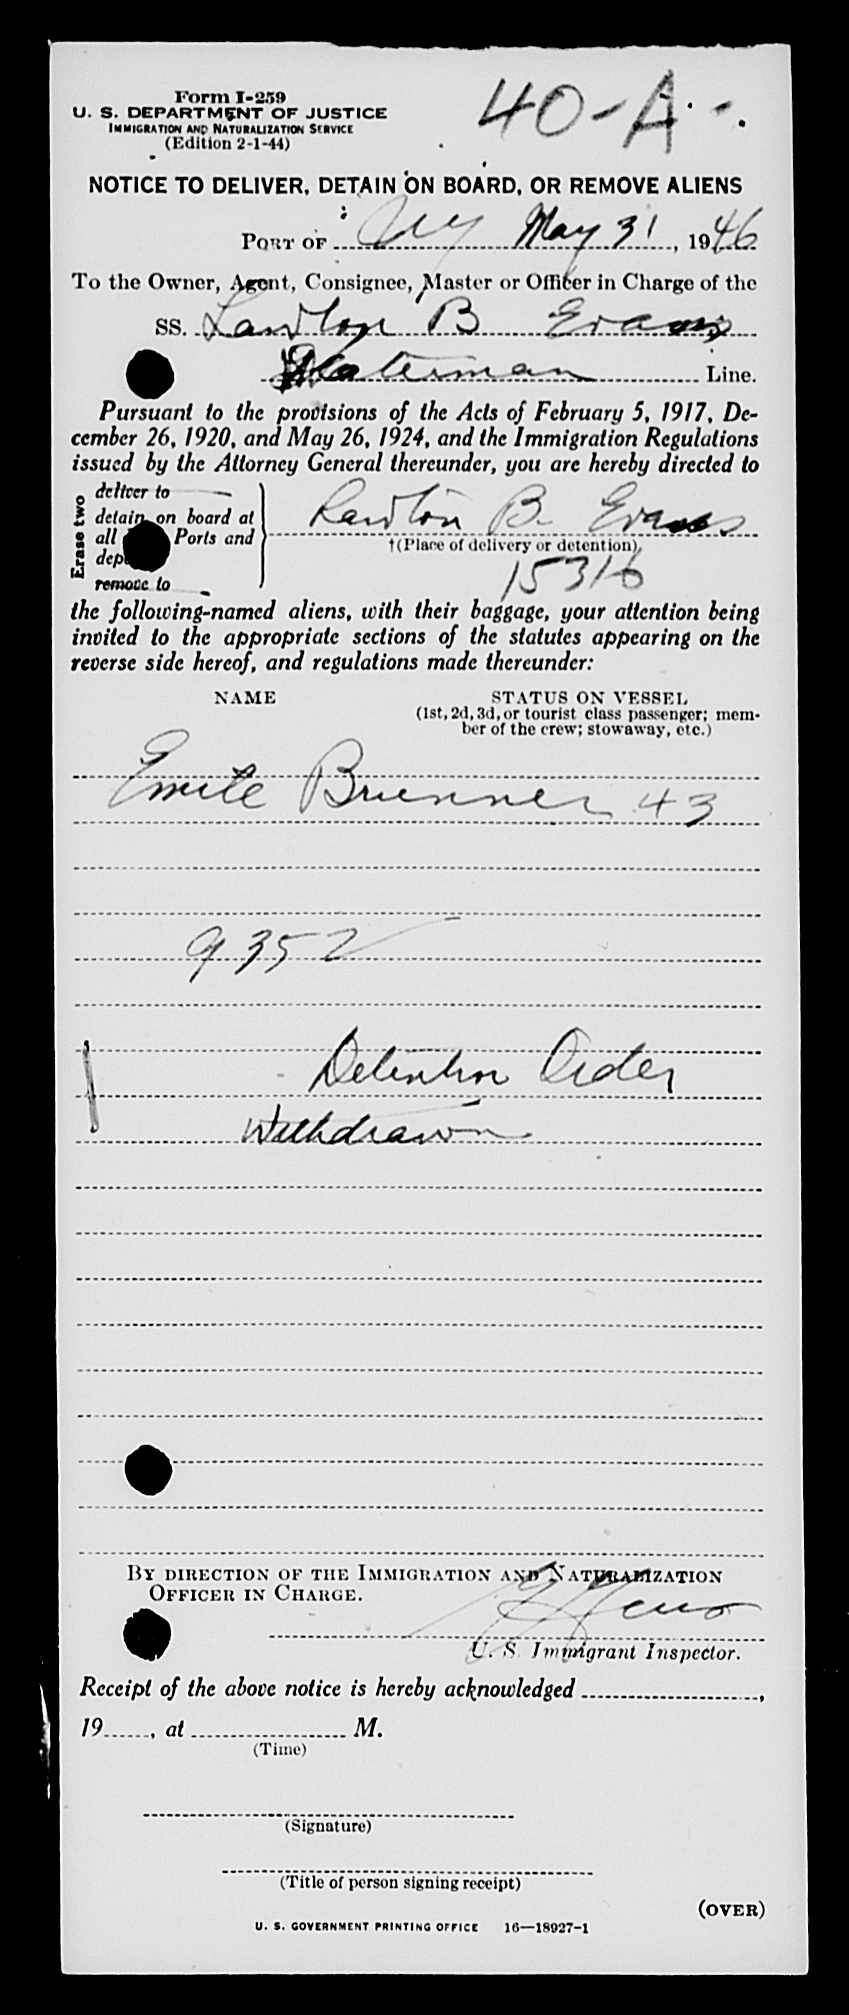 Form I-259
U. S. DEPARTMENT OF JUSTICE
IMMIGRATION AND NATURALIZATION SERVICE
(Edition 2-1-44)
40-A
NOTICE TO DELIVER, DETAIN ON BOARD, OR REMOVE ALIENS
PORT OF NY May 31, 1946
To the Owner, Agent, Consignee, Master or Officer in Charge of the
SS. Lawton B Evans
Waterman Line.
Pursuant to the provisions of the Acts of February 5, 1917, De-
cember 26, 1920, and May 26, 1924, and the Immigration Regulations
issued by the Attorney General thereunder, you are hereby directed to
Erase two
deliver to
detain on board at
all Ports and
remove to
Lawton B. Evans
†(Place of delivery or detention),
15316
the following-named aliens, with their baggage, your attention being
invited to the appropriate sections of the statutes appearing on the
reverse side hereof, and regulations made thereunder:
NAME
STATUS ON VESSEL
(1st, 2d, 3d, or tourist class passenger; mem-
ber of the crew; stowaway, etc.)
Emile Bruenner 43
9352
Detention Order
Withdrawn
BY DIRECTION OF THE IMMIGRATION AND NATURALIZATION
OFFICER IN CHARGE.
U. S. Immigrant Inspector.
Receipt of the above notice is hereby acknowledged ,
19 , at M.
(Time)
(Signature)
(Title of person signing receipt)
(OVER)
U. S. GOVERNMENT PRINTING OFFICE 16—18927-1